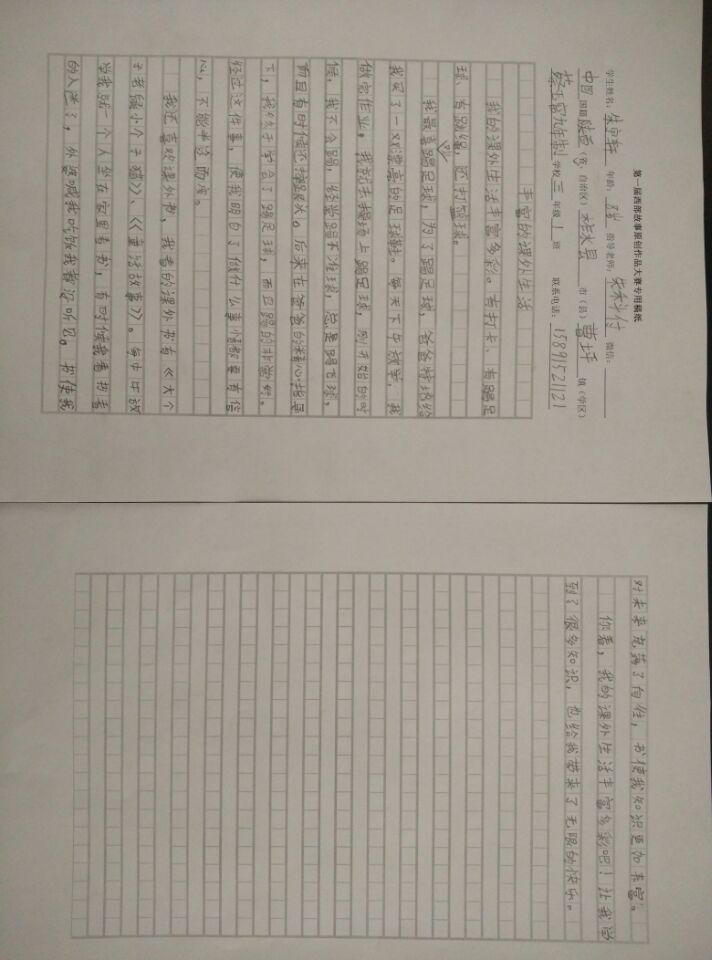 第一届西部故事原创作品大赛专用稿纸
学生姓名: 年龄: 指导老师: 微信:
中国 国籍 陕西 (省、自治区) 柞水县 市(县) 曹坪 镇(学区)
九年制 学校 三 年级 1 班 联系电话: 15891521121
丰富的课外生活
我的课外生活丰富多彩。有打卡、有踢足
球、有跳绳,还打篮球。
我最喜踢足球,为了踢足球,爸爸特地给
我买了一双漂亮的足球鞋。每天下午放学,我
做完作业。我就去操场上踢足球,刚开始的时
候,我不会踢,经常踢不准球,总是踢飞球,
而且有时候还摔跟头。后来在爸爸的精心指导
下,我终于学会了踢足球,而且踢的非常好。
经过这件事,使我明白了做什么事情都要有信
心,不能半途而废。
我还喜欢课外书,我看的课外书有《大个
子老鼠小个子猫》、《童话故事》。每中午放
学我就一个人坐在家里看书,有时候我看书看
的人迷了,外婆喊我吃饭我都没听见。书使我
对未来充满了向往,书使我知识更加丰富。
你看,我的课外生活丰富多彩吧!让我学
到了很多知识,也给我带来了无限的快乐。